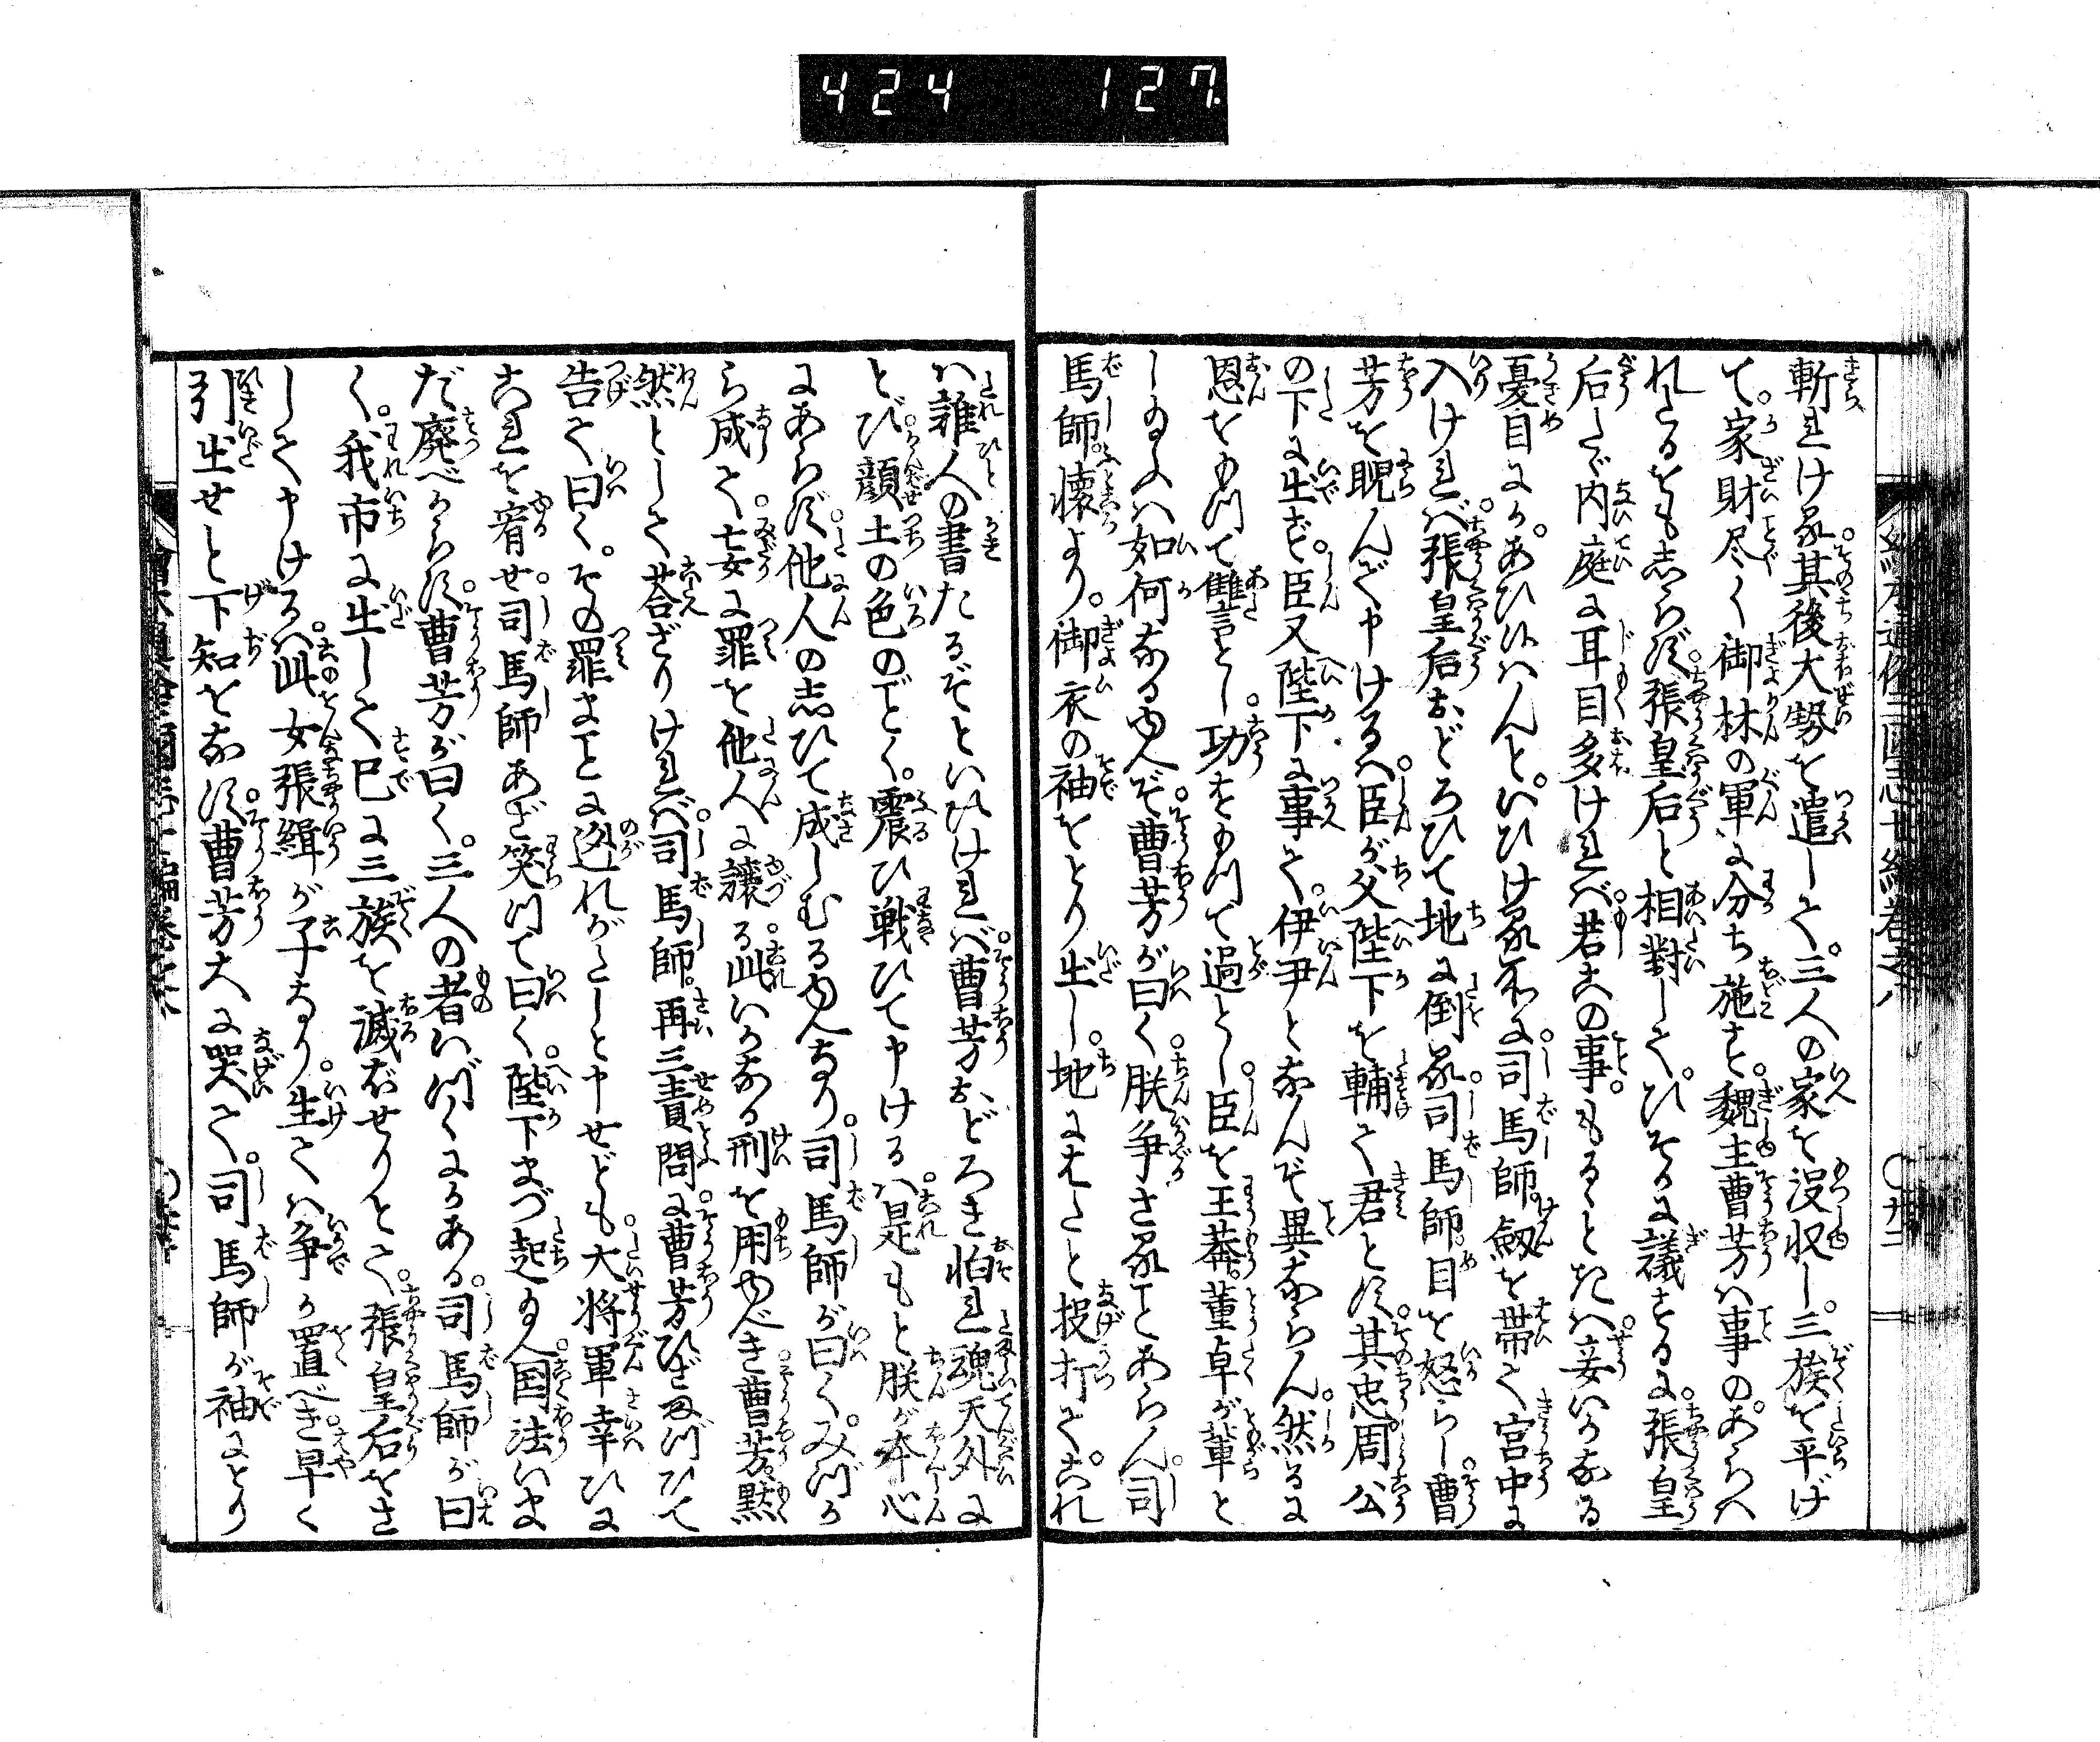 424 127
斬れける其後大勢を遣して。三人の家を没収し。三族を平げ
て。家財尽く御林の軍に分ち施す。魏主曹芳ハ事のあらハ
れたるをも志らず。張皇后と相對して。ひそかに議するに。張皇
后たゞ内庭に耳目多けれバ若この事。もるゝときハ。妾いかなる
憂目にか。あひ候ハんと。いひける所に。司馬師。劔を帯て宮中に
入けれバ。張皇后おどろひて地に倒る司馬師目を怒らし曹
芳を睨んで申けるハ。臣が父陛下を輔て君とす。其忠周公
の下に出ず。臣又陛下に事て。伊尹となんぞ異ならん。然るに
恩をもつて讐言とし。功をもつて過とし。臣を王莽。董卓が輩と
し給ふハ如何なるゆへぞ。曹芳が曰く。朕争さることあらん。司
馬師。懐より。御衣の袖をとり出し。地にはたと投打て。これ
ハ誰人の書たるぞといひけれバ。曹芳おどろき怕れ魂天外に
とび。顔土の色のごとく。震ひ戦ひて申けるハ。是もと朕が本心
にあらず。他人の志ひて成しむるゆへなり。司馬師が曰く。みづか
ら成て。妄に罪を他人に譲る。此いかなる刑を用ゆべき曹芳。黙
然として荅ざりけれバ。司馬師。再三責問に。曹芳ひざまづひて
告て曰く。その罪まことに迯れがたしと申せども。大将軍幸ひに
これを宥せ。司馬師あざ笑つて曰く。陛下まづ起給へ。国法いま
だ廃べからず。曹芳が曰く。三人の者いづくにかある。司馬師が曰
く。我市に出して已に三族を滅ぼせりとて。張皇后をさ
して申けるハ。此女張緝が子なり。生てハ争か置べき。早く
引出せと下知をなす。曹芳大に哭て。司馬師が袖にとり